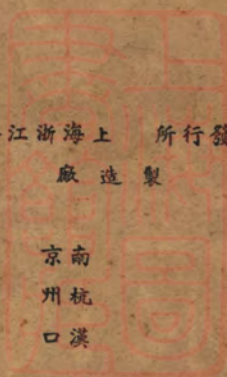 發行所 上海浙江
製造廠
南京
杭州
漢口